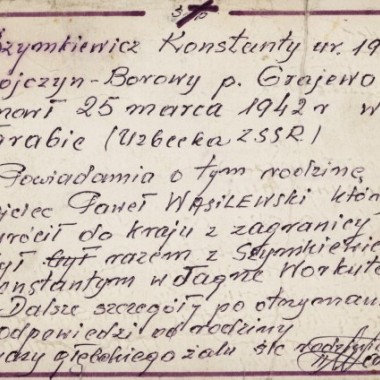 Szymkiewicz Konstanty ur. 19
ójczyn-Borowy p. Grajewo
marł 25 marca 1942 r w
Grabie (Uzbecka ZSSR)
Powiadamia o tym rodzinę
ojciec Paweł WASILEWSKI któr
wrócił do kraju z zagranicy
był był razem z Szymkiewic
onstantym w łagrze Workuta
Dalsze szczegóły po otrzyman
odpowiedzi od rodziny
głębokiego żalu